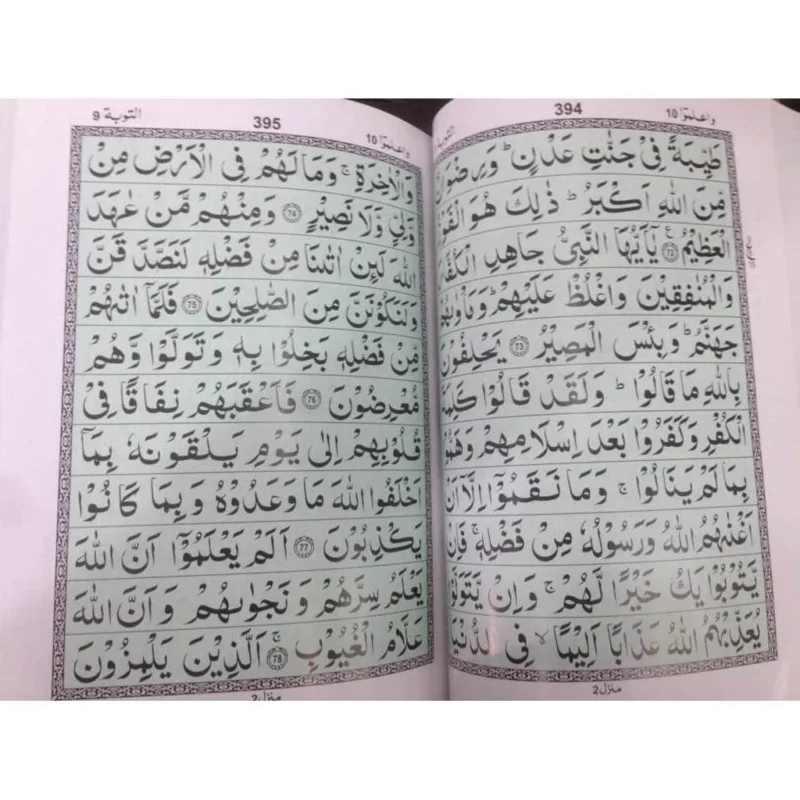 واعلموا ١٠ 394 التوبة
طَيِّبَةً فِيْ جَنّٰتِ عَدْنٍ ؕ وَرِضْوَانٌ
مِّنَ اللّٰهِ اَكْبَرُ ؕ ذٰلِكَ هُوَ الْفَوْزُ
الْعَظِيْمُ 72 يٰۤاَيُّهَا النَّبِيُّ جَاهِدِ الْكُفَّارَ
وَالْمُنٰفِقِيْنَ وَاغْلُظْ عَلَيْهِمْ ؕ وَمَاْوٰىهُمْ
جَهَنَّمُ ؕ وَبِئْسَ الْمَصِيْرُ 73 يَحْلِفُوْنَ
بِاللّٰهِ مَا قَالُوْا ؕ وَلَقَدْ قَالُوْا كَلِمَةَ
الْكُفْرِ وَكَفَرُوْا بَعْدَ اِسْلَامِهِمْ وَهَمُّوْا
بِمَا لَمْ يَنَالُوْا ۚ وَمَا نَقَمُوْۤا اِلَّاۤ اَنْ
اَغْنٰىهُمُ اللّٰهُ وَرَسُوْلُهٗ مِنْ فَضْلِهٖ ۚ فَاِنْ
يَّتُوْبُوْا يَكُ خَيْرًا لَّهُمْ ۚ وَاِنْ يَّتَوَلَّوْا
يُعَذِّبْهُمُ اللّٰهُ عَذَابًا اَلِيْمًا ۙ فِي الدُّنْيَا
منزل 2
التوبة 9 395 واعلموا 10
وَالْاٰخِرَةِ ۚ وَمَا لَهُمْ فِي الْاَرْضِ مِنْ
وَّلِيٍّ وَّلَا نَصِيْرٍ 74 وَمِنْهُمْ مَّنْ عٰهَدَ
اللّٰهَ لَئِنْ اٰتٰىنَا مِنْ فَضْلِهٖ لَنَصَّدَّقَنَّ
وَلَنَكُوْنَنَّ مِنَ الصّٰلِحِيْنَ 75 فَلَمَّاۤ اٰتٰىهُمْ
مِّنْ فَضْلِهٖ بَخِلُوْا بِهٖ وَتَوَلَّوْا وَّهُمْ
مُّعْرِضُوْنَ 76 فَاَعْقَبَهُمْ نِفَاقًا فِيْ
قُلُوْبِهِمْ اِلٰى يَوْمِ يَلْقَوْنَهٗ بِمَاۤ
اَخْلَفُوا اللّٰهَ مَا وَعَدُوْهُ وَبِمَا كَانُوْا
يَكْذِبُوْنَ 77 اَلَمْ يَعْلَمُوْۤا اَنَّ اللّٰهَ
يَعْلَمُ سِرَّهُمْ وَنَجْوٰىهُمْ وَاَنَّ اللّٰهَ
عَلَّامُ الْغُيُوْبِ 78 اَلَّذِيْنَ يَلْمِزُوْنَ
منزل 2